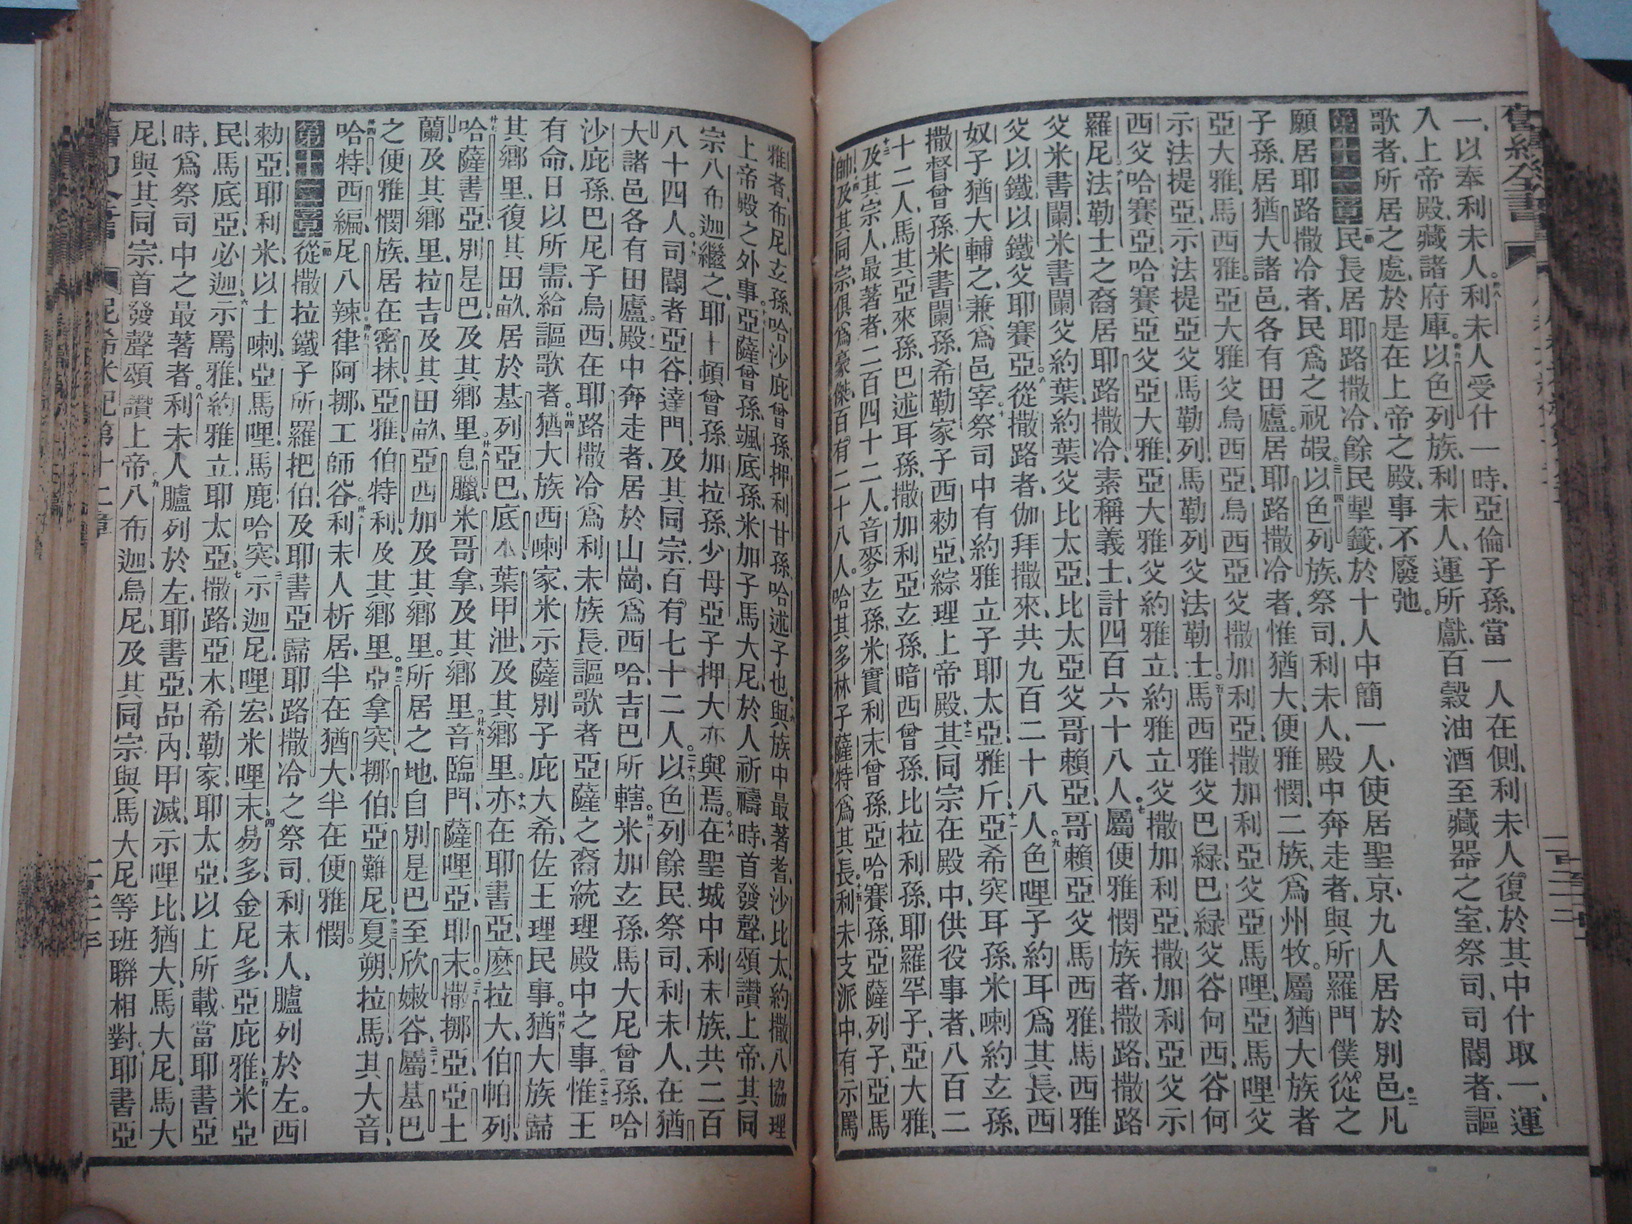 舊約全書
一以奉利未人利未人受什一時亞倫子孫當一人在側利未人復於其中什取一運
入上帝殿藏諸府庫以色列族利未人運所獻百穀油酒至藏器之室祭司司閽者謳
歌者所居之處於是在上帝之殿事不廢弛
第十一章一節民長居耶路撒冷餘民掣籤於十人中簡一人使居聖京九人居於別邑凡
願居耶路撒冷者民爲之祝嘏以色列族祭司利未人殿中奔走者與所羅門僕從之
子孫居猶大諸邑各有田廬居耶路撒冷者惟猶大便雅憫二族爲州牧屬猶大族者
亞大雅馬西雅亞大雅父烏西亞烏西亞父撒加利亞撒加利亞父亞馬哩亞馬哩父
示法提亞示法提亞父馬勒列馬勒列父法勒士馬西雅父巴綠巴綠父谷何西谷何
西父哈賽亞哈賽亞父亞大雅亞大雅父約雅立約雅立父撒加利亞撒加利亞父示
羅尼法勒士之裔居耶路撒冷素稱義士計四百六十八人屬便雅憫族者撒路撒路
父米書闌米書闌父約葉約葉父比太亞比太亞父哥賴亞哥賴亞父馬西雅馬西雅
父以鐵以鐵父耶賽亞從撒路者伽拜撒來共九百二十八人色哩子約耳爲其長西
奴子猶大輔之兼爲邑宰祭司中有約雅立子耶太亞雅斤亞希突耳孫米喇約玄孫
撒督曾孫米書闌孫希勒家子西勑亞綜理上帝殿其同宗在殿中供役事者八百二
十二人馬其亞來孫巴述耳孫撒加利亞玄孫暗西曾孫比拉利孫耶羅罕子亞大雅
及其宗人最著者二百四十二人音麥玄孫米實利末曾孫亞哈賽孫亞薩列子亞馬
帥及其同宗俱爲豪傑百有二十八人哈其多林子薩特爲其長利未支派中有示罵
雅者布尼玄孫哈沙庇曾孫押利甘孫哈述子也與族中最著者沙比太約撒八協理
上帝殿之外事亞薩曾孫颯底孫米加子馬大尼於人祈禱時首發聲頌讚上帝其同
宗八布迦繼之耶十頓曾孫加拉孫少母亞子押大亦與焉在聖城中利未族共二百
八十四人司閽者亞谷達門及其同宗百有七十二人以色列餘民祭司利未人在猶
大諸邑各有田廬殿中奔走者居於山崗爲西哈吉巴所轄米加玄孫馬大尼曾孫哈
沙庇孫巴尼子烏西在耶路撒冷爲利未族長謳歌者亞薩之裔統理殿中之事惟王
有命日以所需給謳歌者猶大族西喇家米示薩別子庇大希佐王理民事猶大族歸
其鄉里復其田畝居於基列亞巴底本葉甲泄及其鄉里亦在耶書亞麽拉大伯帕列
哈薩書亞別是巴及其鄉里息臘米哥拿及其鄉里音臨門薩哩亞耶末撒挪亞亞土
蘭及其鄉里拉吉及其田畝亞西加及其鄉里所居之地自別是巴至欣嫩谷屬基巴
之便雅憫族居在密抹亞雅伯特利及其鄉里亞拿突挪伯亞難尼夏朔拉馬其大音
哈特西編尼八辣律阿挪工師谷利未人析居半在猶大半在便雅憫
第十二章一節從撒拉鐵子所羅把伯及耶書亞歸耶路撒冷之祭司利未人臚列於左西
勑亞耶利米以士喇亞馬哩馬鹿哈突示迦尼哩宏米哩末易多金尼多亞庇雅米亞
民馬底亞必迦示罵雅約雅立耶太亞撒路亞木希勒家耶太亞以上所載當耶書亞
時爲祭司中之最著者利未人臚列於左耶書亞品內甲滅示哩比猶大馬大尼馬大
尼與其同宗首發聲頌讚上帝八布迦烏尼及其同宗與馬大尼等班聯相對耶書亞
尼希米記第十二章